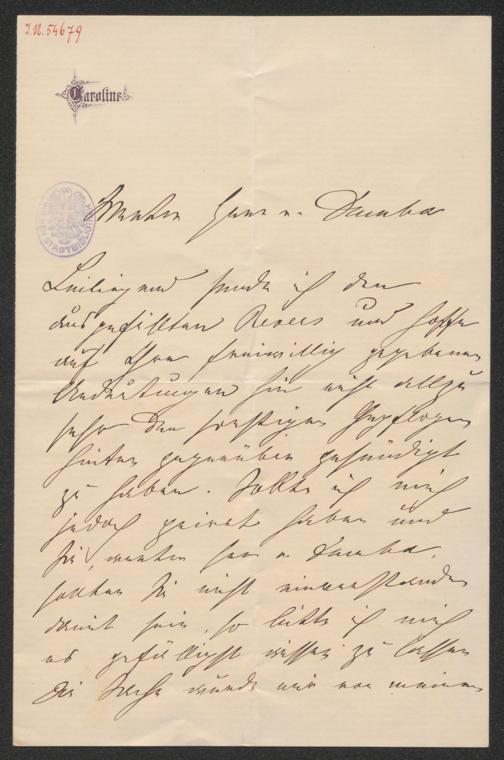 I.N. 54679
Caroline
STADTBIBLIOTHEK
Werther Herr v. Dumba
Beiliegend sende ich den
ausgefüllten Revers und hoffe
auf Ihre freiwillig gegebenen
Andeutungen hin nicht allzu
sehr den sonstigen
gegenüber gesündigt
zu haben. Sollte ich mich
jedoch geirrt haben und
Sie, werther Herr v. Dumba,
sollten Sie nicht einverstanden
damit sein, so bitte ich mich
es gefälligst wissen zu lassen
Die Sache würde mir von meinen